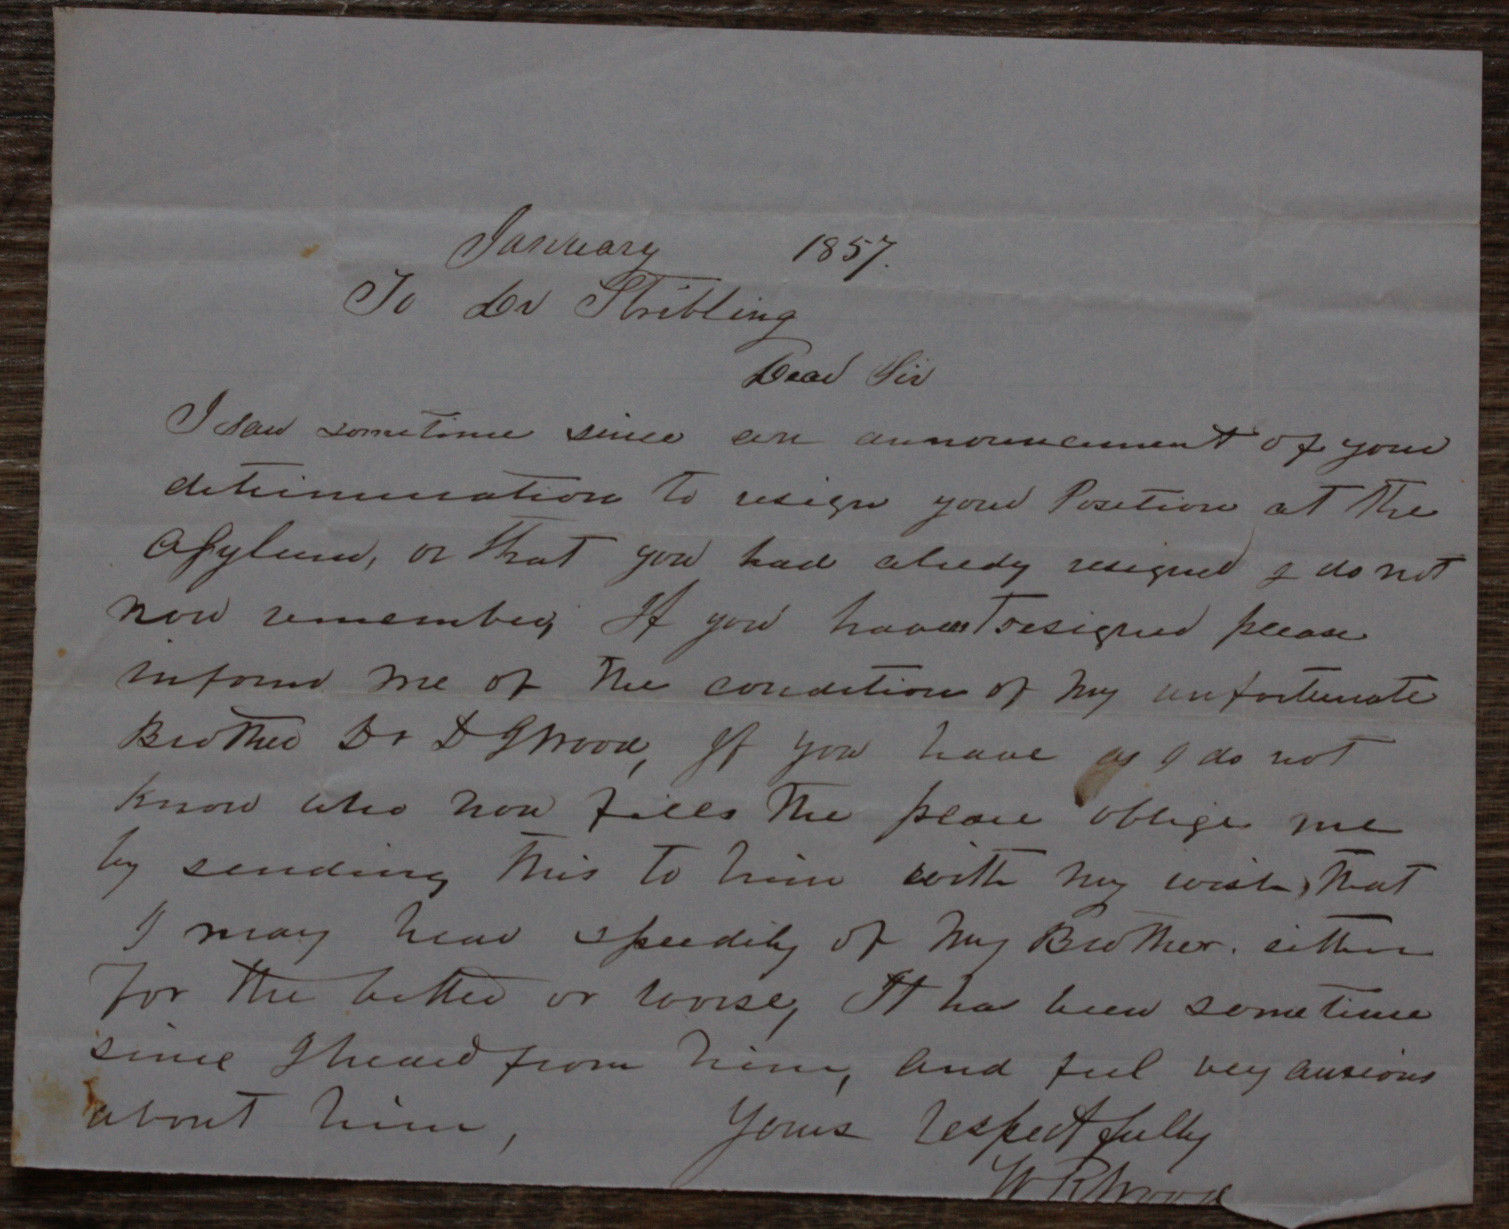 January 1857.
To Dr Stribling
Dear Sir
I saw sometime since an announcement of your
determination to resign your Position at the
Asylum, or that you had alredy resigned I do not
now remember, If you havent resigned please
inform me of the condition of my unfortunate
Brother Dr D G Wood, If you have as I do not
know who now fills the place oblige me
by sending this to him with my wish, that
I may hear speedily of my Brother. either
for the better or worse, It has been sometime
since I heard from him, and feel very anxious
about him, Yours respectfully
W R Wood